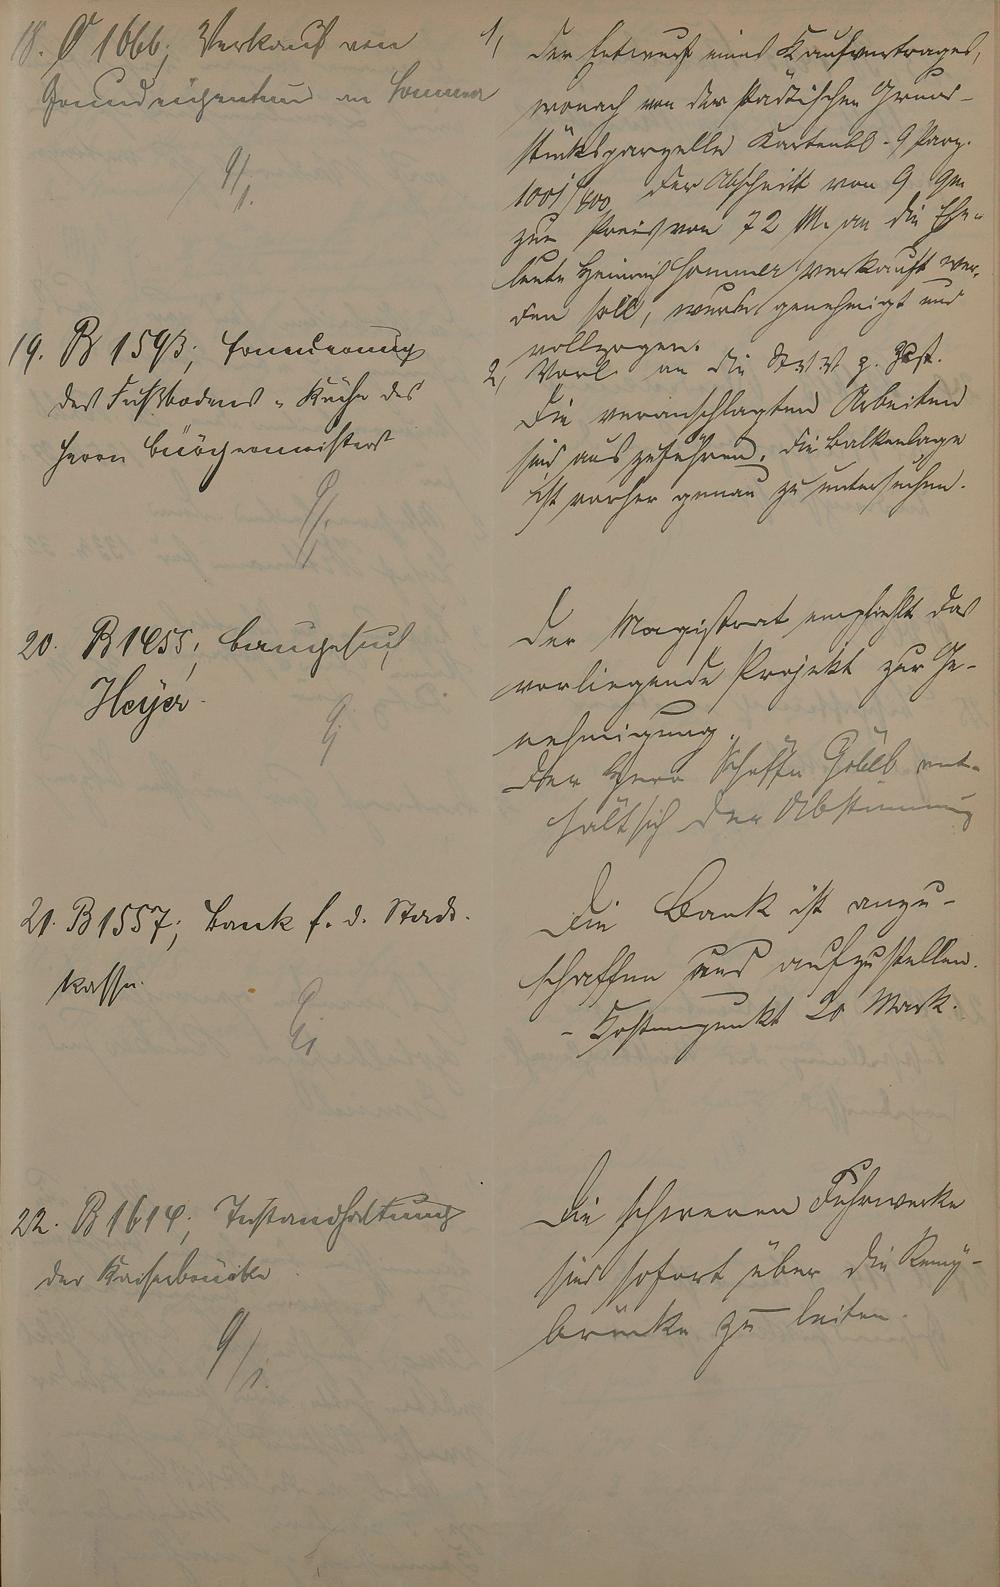 18. O 1666; Verkauf von
Grundeigentum an Sommer
1, Der Entwurf eines Kaufvertrages,
wonach von der städtischen Grund-
stücksparzelle Kartenbl. 9 Parz.
1001/600 der Abschnitt von 9 qm
zum Preis von 72 M. an die Ehe-
leute Heinrich Sommer verkauft wer-
den soll, wurde genehmigt und
vollzogen.
2, Vorl. an die St.V.V. z. Zust.
19. B 1593; Erneuerung
des Fußbodens - Küche des
Herrn Bürgermeisters
Die veranschlagten Arbeiten
sind auszuführen. Die Balkenlage
ist vorher genau zu untersuchen.
20. B 1455; Baugesuch
Heyer
Der Magistrat empfiehlt das
vorliegende Projekt zur Ge-
nehmigung.
Der Herr Schöffe ent-
hält sich der Abstimmung
21. B 1557; Bank f. d. Stadt-
kasse.
Die Bank ist anzu-
schaffen und aufzustellen.
- Kostenpunkt 20 Mark.
22. B 1614; Instandhaltung
der Kaiserbrücke
Die schweren Fuhrwerke
sind sofort über die Remy-
brücke zu leiten.